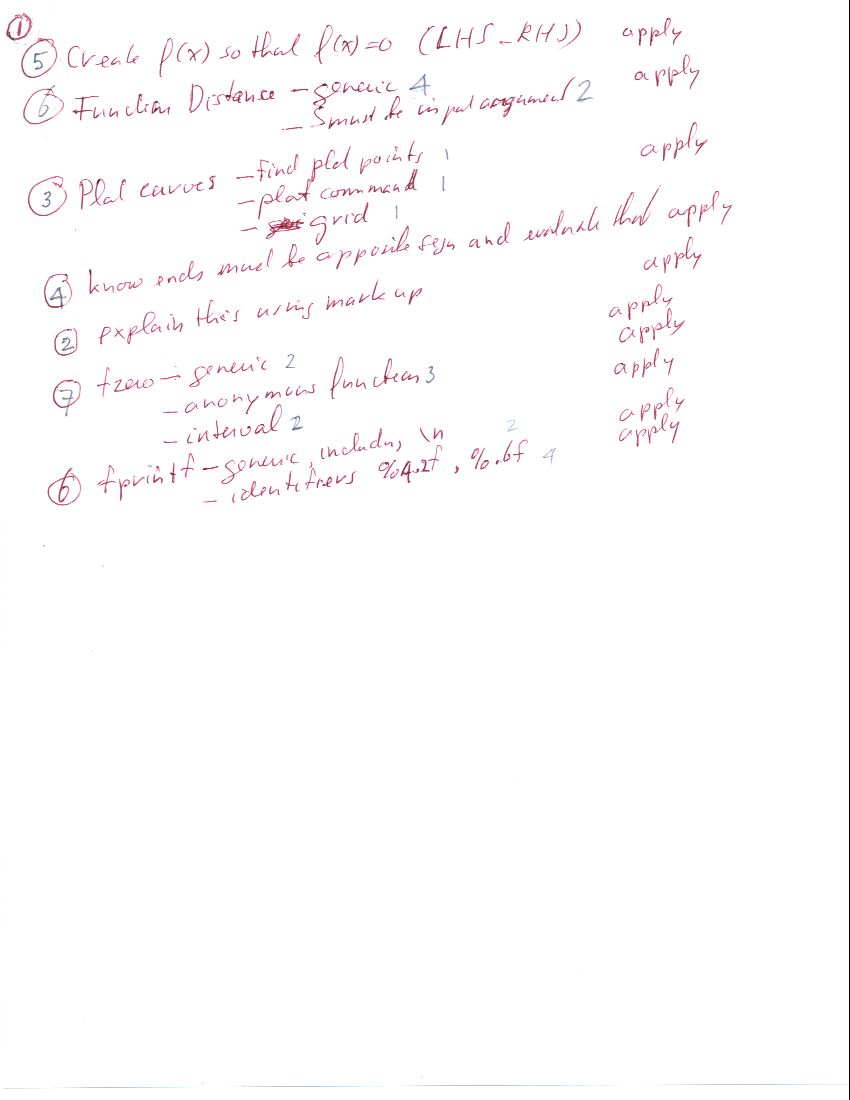 ①
⑤ Create f(x) so that f(x)=0 (LHS-RHS) apply
⑥ Function Distance - generic 4 apply
- S must be input argument 2
③ Plot curves - find plot points 1 apply
- plot command 1
- grid 1
④ know ends must be opposite sign and evaluate that apply
② explain this using mark up apply
⑦ fzero - generic 2 apply
- anonymous function 3 apply
- interval 2 apply
⑥ fprintf - generic, includn, \n 2 apply
- identifiers %4.2f, %.6f 4 apply